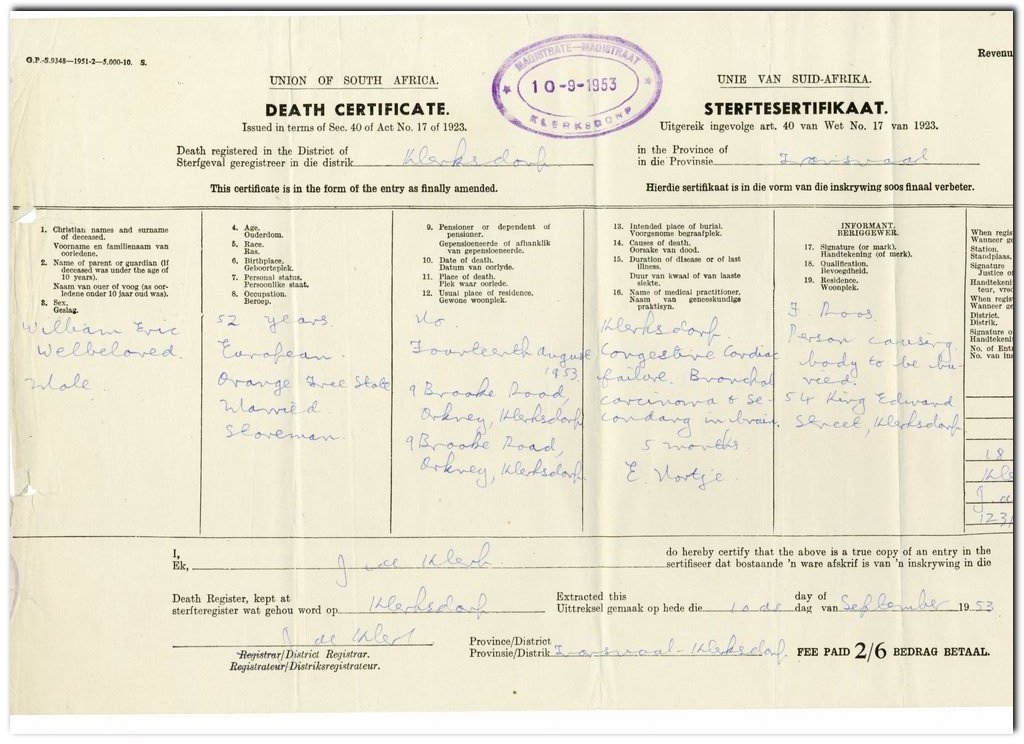 G.P.-S.9348—1951-2—5,000-10. S.
Revenu
UNION OF SOUTH AFRICA.
DEATH CERTIFICATE.
Issued in terms of Sec. 40 of Act No. 17 of 1923.
MAGISTRATE—MAGISTRAAT
10-9-1953
KLERKSDORP
UNIE VAN SUID-AFRIKA.
STERFTESERTIFIKAAT.
Uitgereik ingevolge art. 40 van Wet No. 17 van 1923.
Death registered in the District of
Sterfgeval geregistreer in die distrik Klerksdorp
in the Province of
in die Provinsie Transvaal
This certificate is in the form of the entry as finally amended.
Hierdie sertifikaat is in die vorm van die inskrywing soos finaal verbeter.
1. Christian names and surname
of deceased.
Voorname en familienaam van
oorledene.
2. Name of parent or guardian (if
deceased was under the age of
10 years).
Naam van ouer of voog (as oor-
ledene onder 10 jaar oud was).
3. Sex.
Geslag.
William Eric
Welbeloved.
Male.
4. Age.
Ouderdom.
5. Race.
Ras.
6. Birthplace.
Geboorteplek.
7. Personal status.
Persoonlike staat.
8. Occupation.
Beroep.
52 years.
European.
Orange Free State
Married
Storeman.
9. Pensioner or dependent of
pensioner.
Gepensioeneerde of afhanklik
van gepensioeneerde.
10. Date of death.
Datum van oorlyde.
11. Place of death.
Plek waar oorlede.
12. Usual place of residence.
Gewone woonplek.
No.
Fourteenth August
1953.
9 Brooke Road,
Orkney, Klerksdorp
9 Brooke Road,
Orkney, Klerksdorp.
13. Intended place of burial.
Voorgenome begraafplek.
14. Causes of death.
Oorsake van dood.
15. Duration of disease or of last
illness.
Duur van kwaal of van laaste
siekte.
16. Name of medical practitioner.
Naam van geneeskundige
praktisyn.
Klerksdorp
Congestive Cardiac
failure. Bronchal
carcinoma & se-
condary in brain.
5 months.
E. Vortje.
INFORMANT.
BERIGGEWER.
17. Signature (or mark).
Handtekening (of merk).
18. Qualification.
Bevoegdheid.
19. Residence.
Woonplek.
F. Roos.
Person causing
body to be bu-
ried.
54 King Edward
Street, Klerksdorp
When regis
Wanneer ge
Station.
Standplaas.
Signature
Justice o
Handtekeni
teur, vred
When regis
Wanneer ge
District.
Distrik.
Signature o
Handtekeni
No. of Ent
No. van ins
18
Kle
J. de
123/
I,
Ek, J de Klerk
do hereby certify that the above is a true copy of an entry in the
sertifiseer dat bostaande 'n ware afskrif is van 'n inskrywing in die
Death Register, kept at
sterfteregister wat gehou word op Klerksdorp
Extracted this
Uittreksel gemaak op hede die 10 de
day of
dag van September 1953
J de Klerk
Registrar/District Registrar.
Registrateur/Distriksregistrateur.
Province/District
Provinsie/Distrik Transvaal-Klerksdorp.
FEE PAID 2/6 BEDRAG BETAAL.